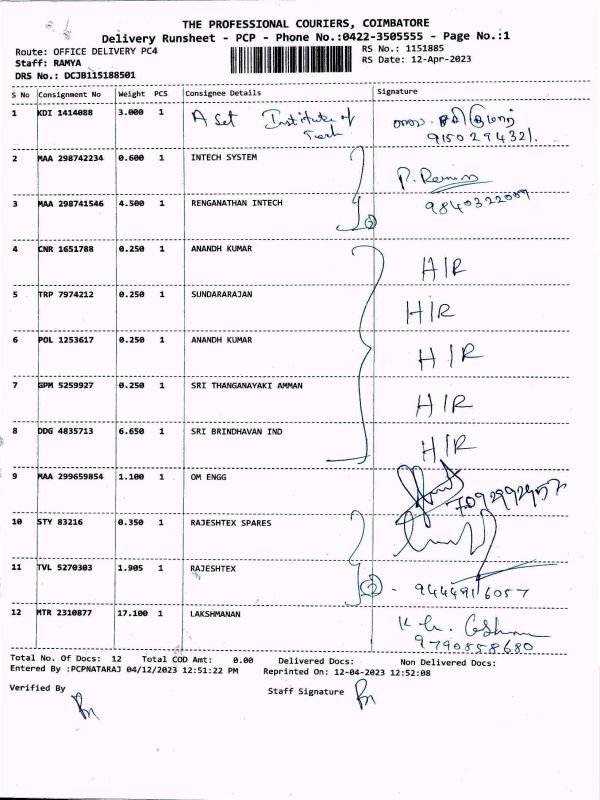 THE PROFESSIONAL COURIERS, COIMBATORE
Delivery Runsheet - PCP - Phone No.:0422-3505555 - Page No.:1
Route: OFFICE DELIVERY PC4 RS No.: 1151885
Staff: RAMYA RS Date: 12-Apr-2023
DRS No.: DCJB115188501
S No Consignment No Weight PCS Consignee Details Signature
1 KDI 1414088 3.000 1 A Set Institute of Tech
9150294321.
2 MAA 298742234 0.600 1 INTECH SYSTEM
3 MAA 298741546 4.500 1 RENGANATHAN INTECH 2 9840322009
4 CNR 1651788 0.250 1 ANANDH KUMAR H/R
5 TRP 7974212 0.250 1 SUNDARARAJAN H/R
6 POL 1253617 0.250 1 ANANDH KUMAR H/R
7 GPM 5259927 0.250 1 SRI THANGANAYAKI AMMAN H/R
8 DDG 4835713 6.650 1 SRI BRINDHAVAN IND H/R
9 MAA 299659854 1.100 1 OM ENGG
10 STY 83216 0.350 1 RAJESHTEX SPARES
11 TVL 5270303 1.905 1 RAJESHTEX 2 - 9444916057
12 MTR 2310877 17.100 1 LAKSHMANAN
9790558680
Total No. Of Docs: 12 Total COD Amt: 0.00 Delivered Docs: Non Delivered Docs:
Entered By :PCPNATARAJ 04/12/2023 12:51:22 PM Reprinted On: 12-04-2023 12:52:08
Verified By Staff Signature